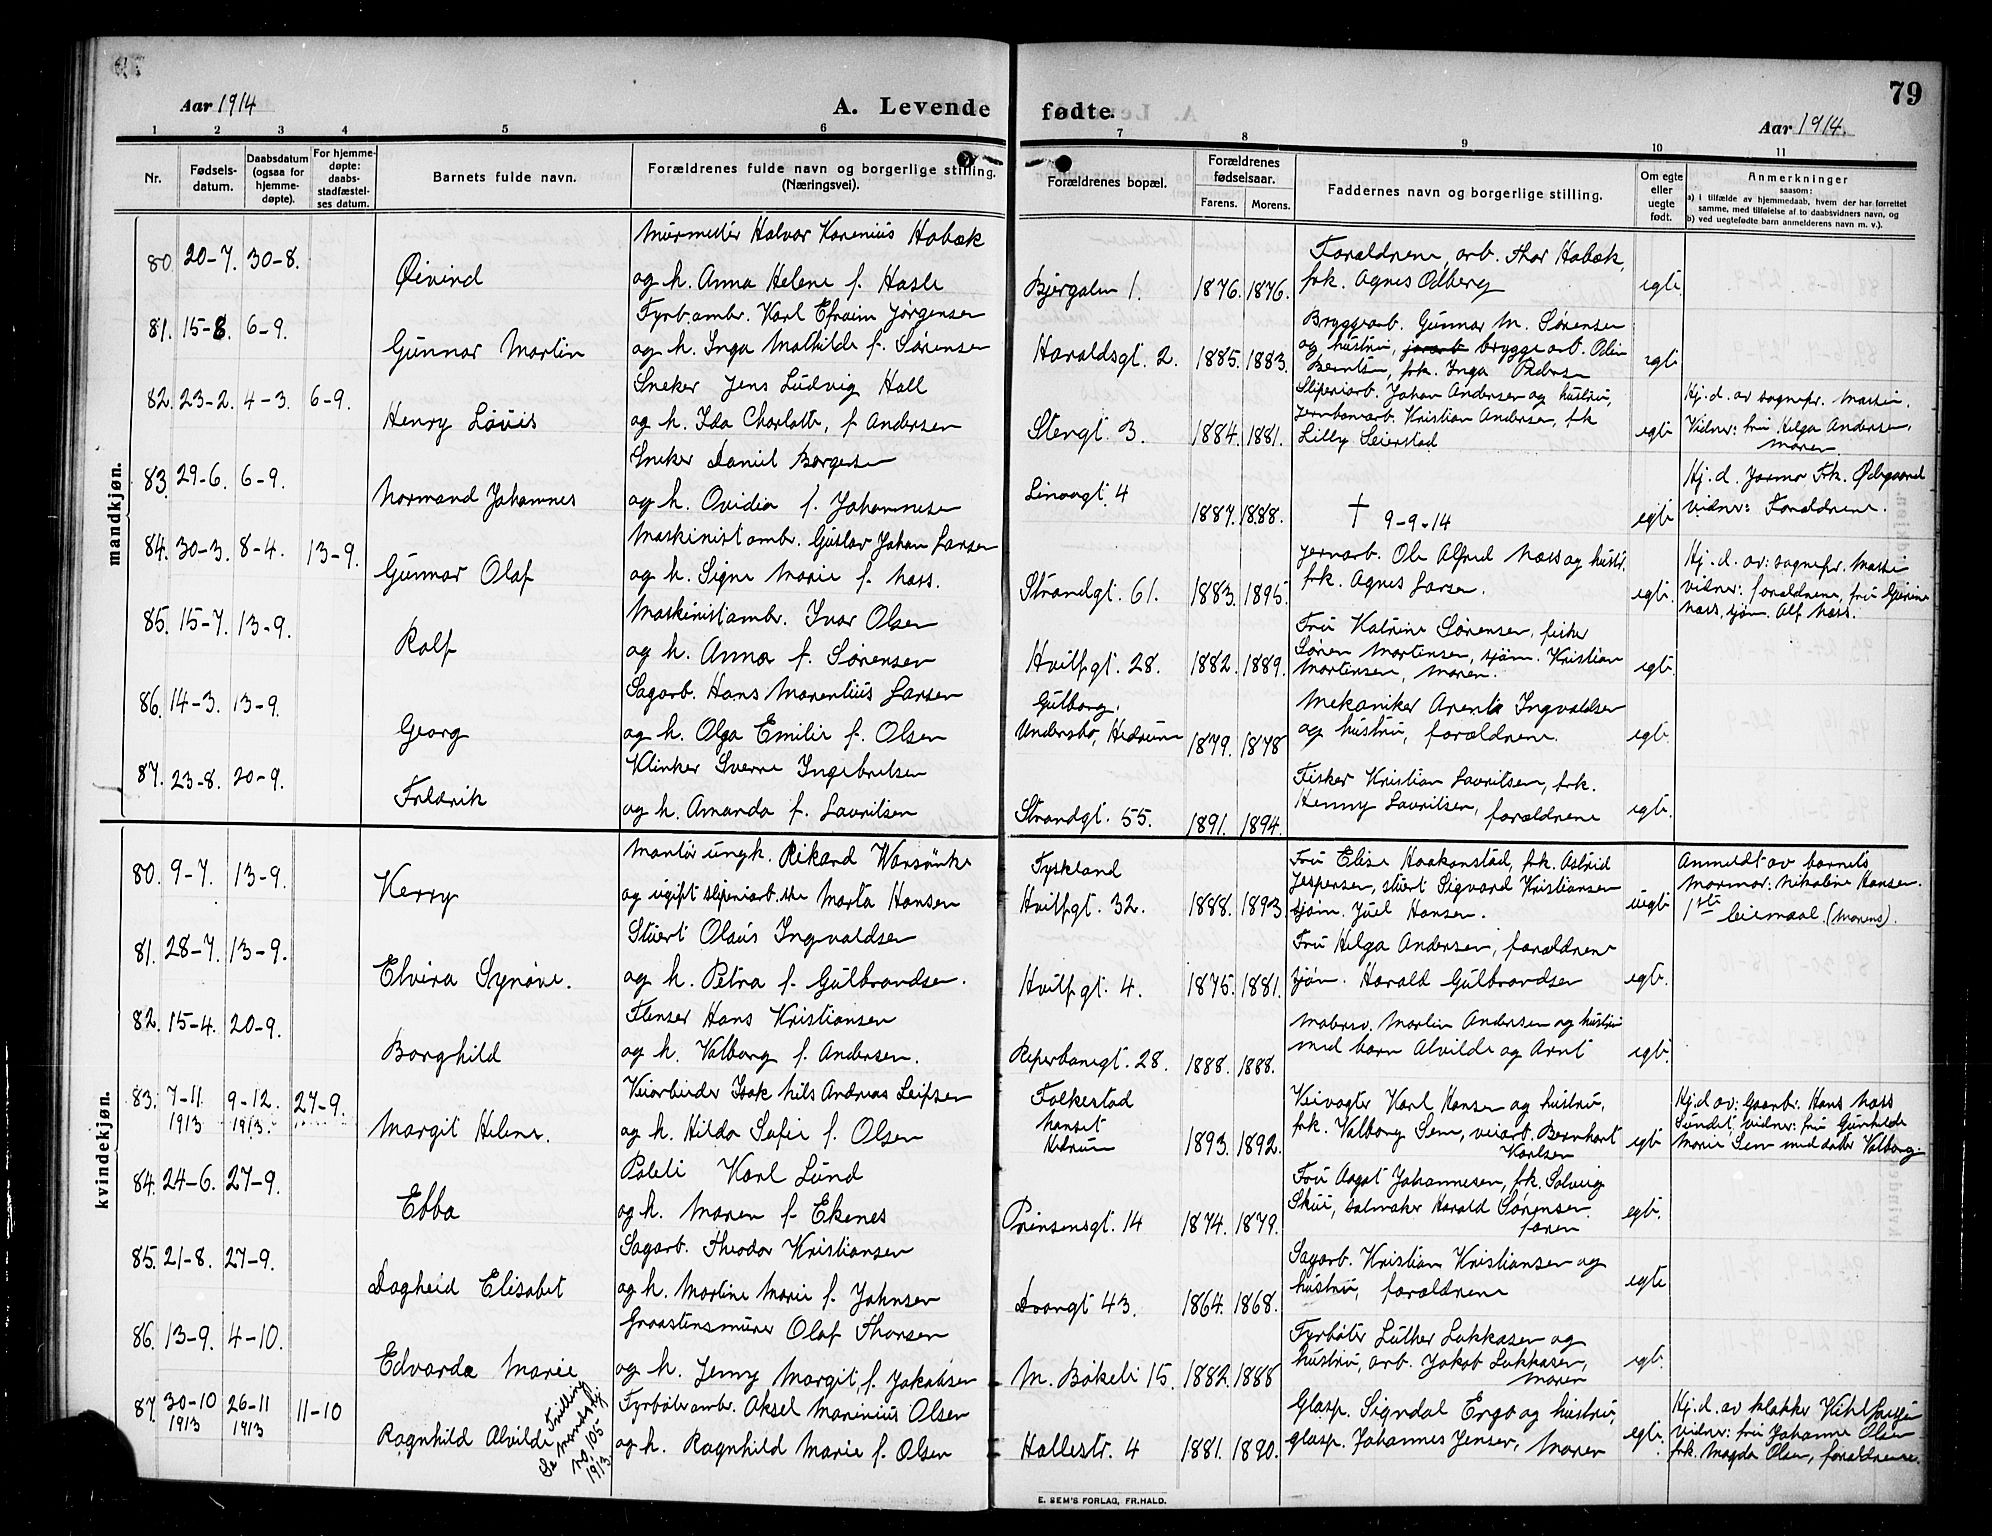 79
Aar 1914
A. Levende
fødte.
Aar 1914.
1 2 3 4 5 6 7 8 9 10 11
Nr. Fødsels-datum. Daabsdatum (ogsaa for hjemme-døpte). For hjemme-døpte: daabs-stadfæstel-ses datum. Barnets fulde navn. Forældrenes fulde navn og borgerlige stilling. (Næringsvei). Forældrenes bopæl. Forældrenes fødselsaar. Farens. Morens. Faddernes navn og borgerlige stilling. Om egte eller uegte født. Anmerkninger saasom: a) I tilfælde av hjemmedaab, hvem der har forrettet samme, med tilføielse af to daabsvidners navn, og b) ved uegtefødte barn anmelderens navn m. v.).
mandkjøn.
Murmester Halvor Karenius Habæk
80 20-7. 30-8. Øivind og h. Anna Helene f. Hasle Bjergalen 1. 1876. 1876. Forældrene, arb. Thor Habæk,
frk. Agnes Odberg egte.
Fyrb.ambr. Karl Efraim Jørgensen
81. 15-8 6-9. Gunnar Martin og h. Inga Mathilde f. Sørensen Haraldsgt. 2. 1885. 1883. Bryggearb. Gunnar M. Sørensen
og hustru, bryggearb. Odin
Berntsen, frk. Inga Pedersen egte
Sneker Jens Ludvig Hall
82. 23-2. 4-3. 6-9. Henry Louis og h. Ida Charlotte, f. Andersen Stengt. 3. 1884. 1881. Sliperiarb. Johan Andersen og hustru,
jernbanearb. Kristian Andersen, frk
Lilly Seierstad egte
Hj. d. av sognepr. Massie.
Vidner: fru Helga Andersen,
moren.
Sneker Daniel Borgersen
83. 29-6. 6-9. Normand Johannes og h. Ovidia f. Johannesen Linaagt. 4 1887. 1888. † 9-9-14 egte
Hj. d. Jormor Frk. Ødegaard
vidner: Forældrene.
Maskinist ambr. Gustav Johan Larsen
84. 30-3. 8-4. 13-9. Gunnar Olaf og h. Signe Marie f. Næss. Strandgt. 61. 1883. 1895. Jernarb. Ole Alfred Næss og hustr.
frk. Agnes Larsen. egte.
Hj. d. av: sognepr. Massie
vidner: forældrene, fru Gurine
Næss, sjøm. Alf Næss.
Maskinistambr. Ivar Olsen
85. 15-7. 13-9. Rolf og h. Anna f. Sørensen Hvitfgt. 28. 1882. 1889. Fru Katrine Sørensen, fisker
Søren Mortensen, sjøm. Kristian
Mortensen, moren. egte.
Sagarb. Hans Marentius Larsen
86. 14-3. 13-9. Georg og h. Olga Emilie f. Olsen Gulborg.
Undersbo, Hedrum 1879. 1878 Mekaniker Arent Ingvaldsen
og hustru, forældrene. egte.
Klinker Sverre Ingebretsen
87. 23-8. 20-9. Fredrik og h. Amanda f. Lauritsen Strandgt. 55. 1891. 1894. Fisker Kristian Lauritsen, frk.
Henny Lauritsen, forældrene egte.
kvindekjøn.
Montør ungk. Rikard Warsönke
80. 9-7. 13-9. Kerry og ugift sliperiarb.ske Marta Hansen Tyskland
Hvitfgt. 32. 1888. 1893 Fru Elise Haakonstad, frk. Astrid
Jespersen, stuert Sigvard Kristiansen
sjøm. Juel Hansen. uegte
Anmeldt av barnets
mormor: Nikoline Hansen.
1ste leiermaal. (morens).
Stuert Olaus Ingvaldsen
81. 28-7. 13-9. Elvira Synøve. og h. Petra f. Gulbrandsen. Hvitfgt. 4. 1875. 1881. Fru Helga Andersen, forældrene
sjøm. Harald Gulbrandsen egte.
Flenser Hans Kristiansen
82. 15-4. 20-9. Borghild og h. Valborg f. Andersen. Reperbanegt. 28. 1888. 1888. Malersv. Martin Andersen og hustru
med barn Alvilde og Arnt egte.
Veiarbeider Isak Nils Andreas Leifsen
83. 7-11 1913 9-12. 1913. 27-9. Margit Helene. og h. Hilda Sofie f. Olsen Folkestad
Nanset
Hedrum 1893. 1892. Veivogter Karl Hansen og hustru,
frk. Valborg Sem, veiarb. Bernhart
Karlsen egte
Hj. d av: Gaarbr. Hans Næss
Sundet, vidner: fru Gunhilde
Marie Sem med datter Valborg.
Politi Karl Lund
84. 24-6. 27-9. Ebba og h. Maren f. Ekenes Prinsensgt. 14 1874. 1879. Fru Aagot Johannesen, frk. Solveig
Skui, salmaker Harald Sørensen.
faren egte.
Sagarb. Theodor Kristiansen
85. 21-8. 27-9. Dagheid Elisabet og h. Martine Marie f. Johnsen Dronngt 43. 1864. 1868. Sagarb. Kristian Kristiansen og
hustru, forældrene egte
Graastensmurer Olaf Thorsen
86. 13-9. 4-10. Edvarda Marie og h. Jenny Margit, f. Jakobsen M. Bøkeli 15. 1882. 1888 Fyrbøter Luther Lukkasen og
hustru, arb. Jakob Lukkasen,
moren egte.
Fyrbøterambr. Aksel Marinius Olsen
87. 30-10 1913 26-11 1913 11-10 Ragnhild Alvilde Tvilling
Se mandskj
no 105
1913. og h. Ragnhild Marie f. Olsen Hallestr. 4 1881. 1890. Glasp. Sigvdal Ergo og hustru,
glasp. Johannes Jensen, Moren egte.
Hj. d. av klokker Kihl
vidner: fru Johanne Olsen
frk. Magda Olsen, forældrene.
E. SEM'S FORLAG, FR.HALD.